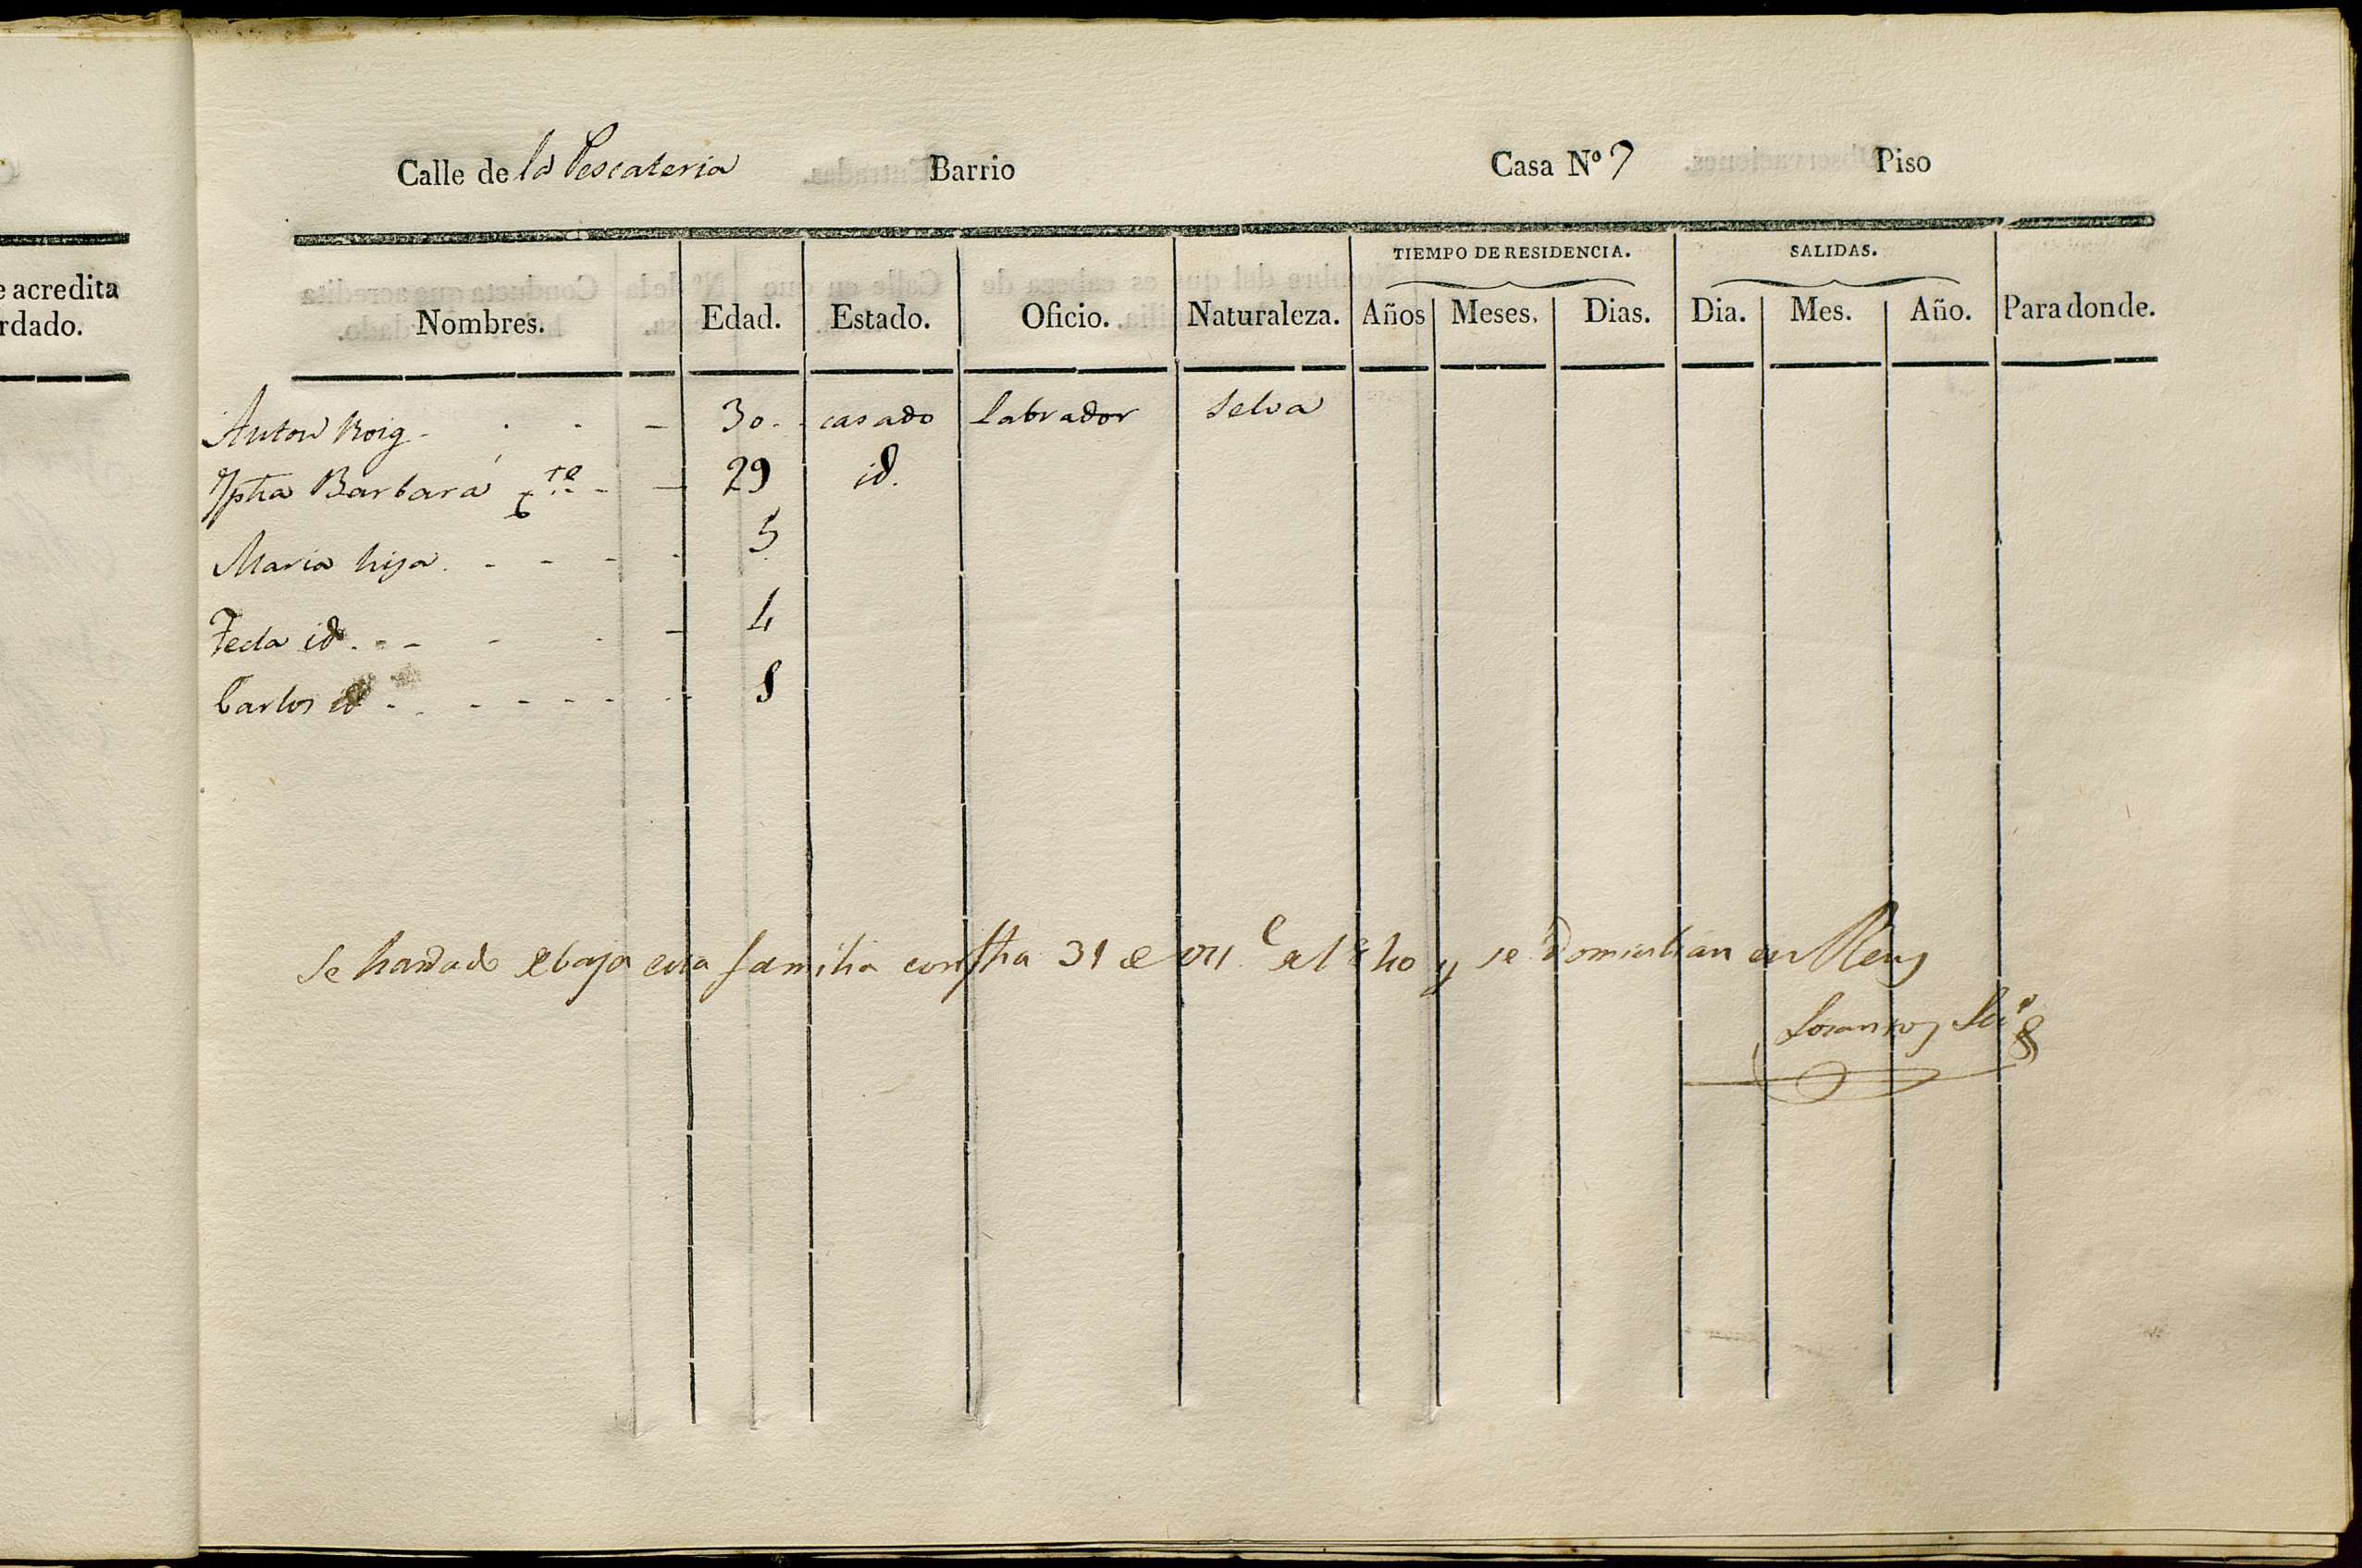 e acredita
rdado.
Calle de la Pescateria Barrio Casa Nº 7 Piso
TIEMPO DE RESIDENCIA. SALIDAS.
Nombres. Edad. Estado. Oficio. Naturaleza. Años Meses. Dias. Dia. Mes. Año. Para donde.
Anton Roig 30 casado labrador Selva
Barbara 29 id.
Maria hija 5
Tecla id. 4
Carlos id 8
Se han dado de baja esta familia con fha 31 de y se domicilian en Reus